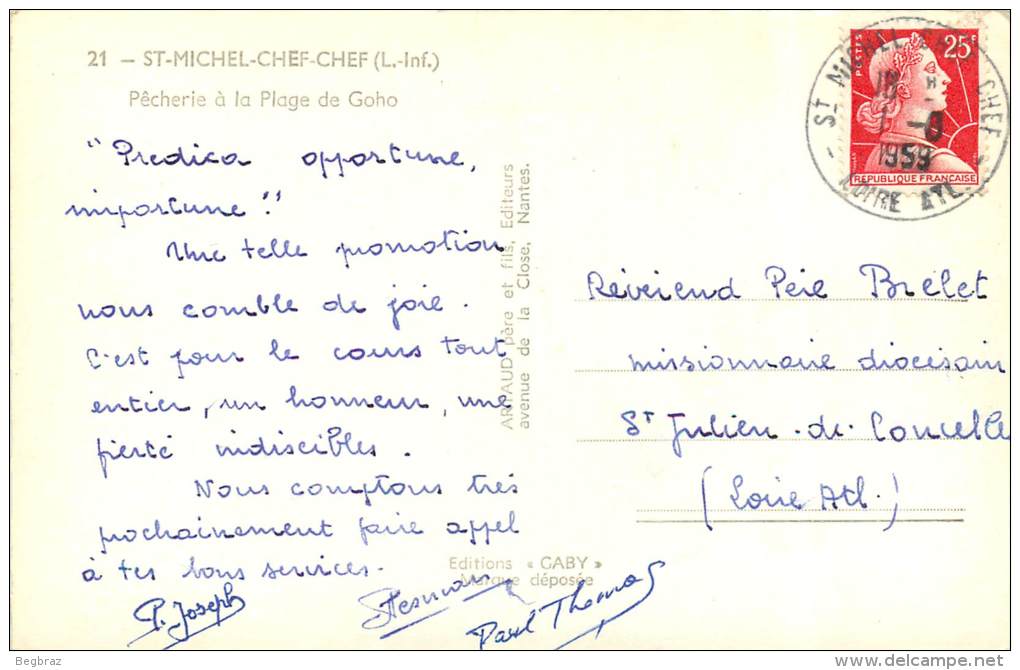 21 — ST-MICHEL-CHEF-CHEF (L.-Inf.)
Pêcherie à la Plage de Goho
"Predica opportune,
importune."
Une telle promotion
nous comble de joie.
C'est pour le cours tout
entier, un honneur, une
fierté indiscibles.
Nous comptons très
prochainement faire appel
à tes bons services.
P. Joseph
Paul Thomas
ARTAUD père et fils, Editeurs
avenue de la Close, Nantes.
Editions « GABY »
Marque déposée
POSTES 25F
REPUBLIQUE FRANÇAISE
ST MICHEL CHEF CHEF
18 H
1959
LOIRE ATL.
Révérend Père Brelet
missionnaire diocésain
St Julien-de-Concelle
(Loire Atl.)
Begbraz
www.delcampe.net